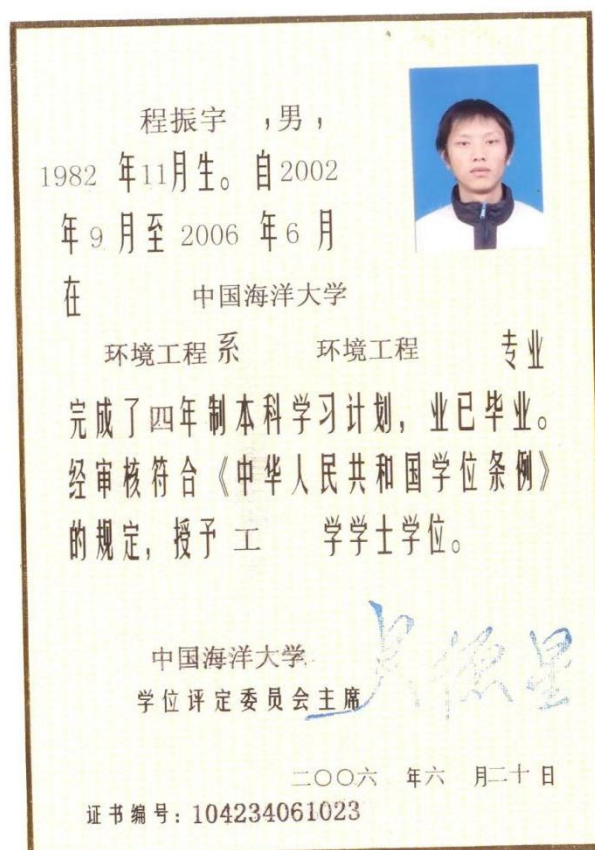 程振宇 ,男,
1982 年11月生。自2002
年9月至 2006 年6月
在 中国海洋大学
环境工程系 环境工程 专业
完成了四年制本科学习计划,业已毕业。
经审核符合《中华人民共和国学位条例》
的规定,授予 工 学学士学位。
中国海洋大学
学位评定委员会主席 吴德星
二〇〇六 年六 月二十日
证书编号:104234061023